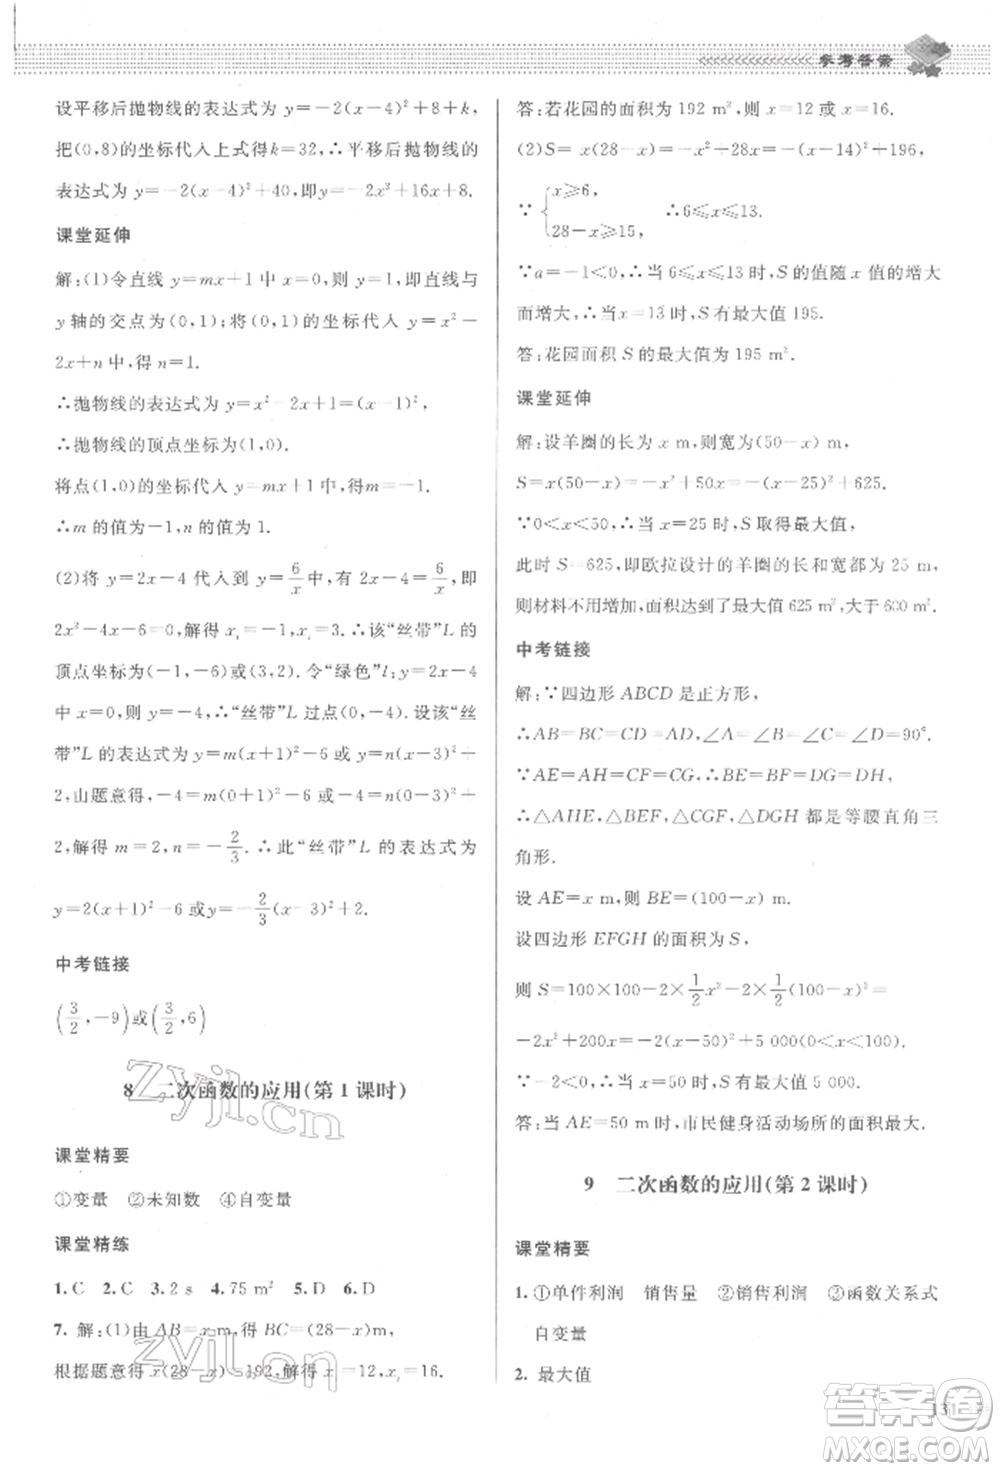 参考答案
设平移后抛物线的表达式为 y=-2(x-4)²+8+k,
把(0,8)的坐标代入上式得k=32,∴平移后抛物线的
表达式为 y=-2(x-4)²+40,即y=-2x²+16x+8.
课堂延伸
解:(1)令直线 y=mx+1 中 x=0,则 y=1,即直线与
y 轴的交点为(0,1);将(0,1)的坐标代入 y=x²-
2x+n 中,得 n=1.
∴抛物线的表达式为 y=x²-2x+1=(x-1)²,
∴抛物线的顶点坐标为(1,0).
将点(1,0)的坐标代入 y=mx+1,得m=-1.
∴m 的值为-1,n 的值为 1.
(2)将 y=2x-4 代入到 y=6/x中,有 2x-4=6/x,即
2x²-4x-6=0,解得 x₁=-1,x₂=3.∴该“丝带”L 的
顶点坐标为(-1,-6)或(3,2). 令“绿色”l:y=2x-4
中 x=0,则 y=-4,∴“丝带”L 过点(0,-4). 设该“丝
带”L 的表达式为 y=m(x+1)²-6 或 y=n(x-3)²+
2,由题意得,-4=m(0+1)²-6 或-4=n(0-3)²+
2,解得 m=2,n=-2/3.∴此“丝带”L 的表达式为
y=2(x+1)²-6 或y=-2/3(x-3)²+2.
中考链接
(3/2,-9)或(3/2,6)
8 二次函数的应用(第 1 课时)
课堂精要
①变量 ②未知数 ④自变量
课堂精练
1.C 2.C 3.2 s 4.75 m² 5.D 6.D
7. 解:(1)由 AB=x m,得 BC=(28-x)m,
根据题意得 x(28-x)=192,解得 x₁=12,x₂=16.
答:若花园的面积为 192 m²,则 x=12或 x=16.
(2)S=x(28-x)=-x²+28x=-(x-14)²+196,
∵{x≥6, 28-x≥15, ∴6≤x≤13.
∵a=-1<0,∴当 6≤x≤13时,S 的值随 x 值的增大
而增大,∴当 x=13时,S有最大值 195.
答:花园面积 S 的最大值为 195 m².
课堂延伸
解:设羊圈的长为 x m,则宽为(50-x) m,
S=x(50-x)=-x²+50x=-(x-25)²+625.
∵0<x<50,∴当 x=25时,S 取得最大值,
此时 S=625,即欧拉设计的羊圈的长和宽都为 25 m,
则材料不用增加,面积达到了最大值 625 m²,大于 600 m².
中考链接
解:∵四边形 ABCD 是正方形,
∴AB=BC=CD=AD,∠A=∠B=∠C=∠D=90°.
∵AE=AH=CF=CG,∴BE=BF=DG=DH,
∴△AHE,△BEF,△CGF,△DGH 都是等腰直角三
角形.
设 AE=x m,则 BE=(100-x) m.
设四边形 EFGH 的面积为 S,
则 S=100×100-2×1/2x²-2×1/2(100-x)²=
-2x²+200x=-2(x-50)²+5 000(0<x<100).
∵-2<0,∴当 x=50时,S 有最大值为 5 000.
答:当 AE=50 m 时,市民健身活动场所的面积最大.
9 二次函数的应用(第 2 课时)
课堂精要
1. ①单件利润 销售量 ②销售利润 ③函数关系式
自变量
2. 最大值
zyjl.cn
zyjl.cn
答案圈
MXQE.COM